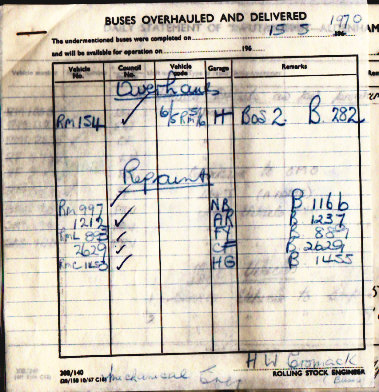 BUSES OVERHAULED AND DELIVERED
The undermentioned buses were completed on 15-5 1970 196
and will be available for operation on 196
Vehicle No. Council No. Vehicle code Garage Remarks
Overhauls
RM 154 ✓ 6/5 RM 5/6 H BOS 2. B. 282
Repaints
RM 997 ✓ NB B 1166
1212 ✓ AR B 1237
RML 893 ✓ FY B 889
2629 ✓ CF B 2629
RMC 1453 ✓ HG B 1455
H W Cormack
308/140 ROLLING STOCK ENGINEER
Mechanical Engr (Buses)